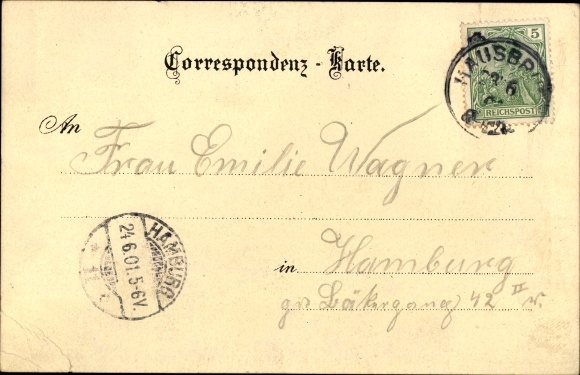 Correspondenz - Karte.
5
REICHSPOST
HAUSBR
6
An
Frau Emilie Wagner
HAMBURG
24.6.01.5-6V.
in Hamburg
gr. Bäkergang 42 II r.